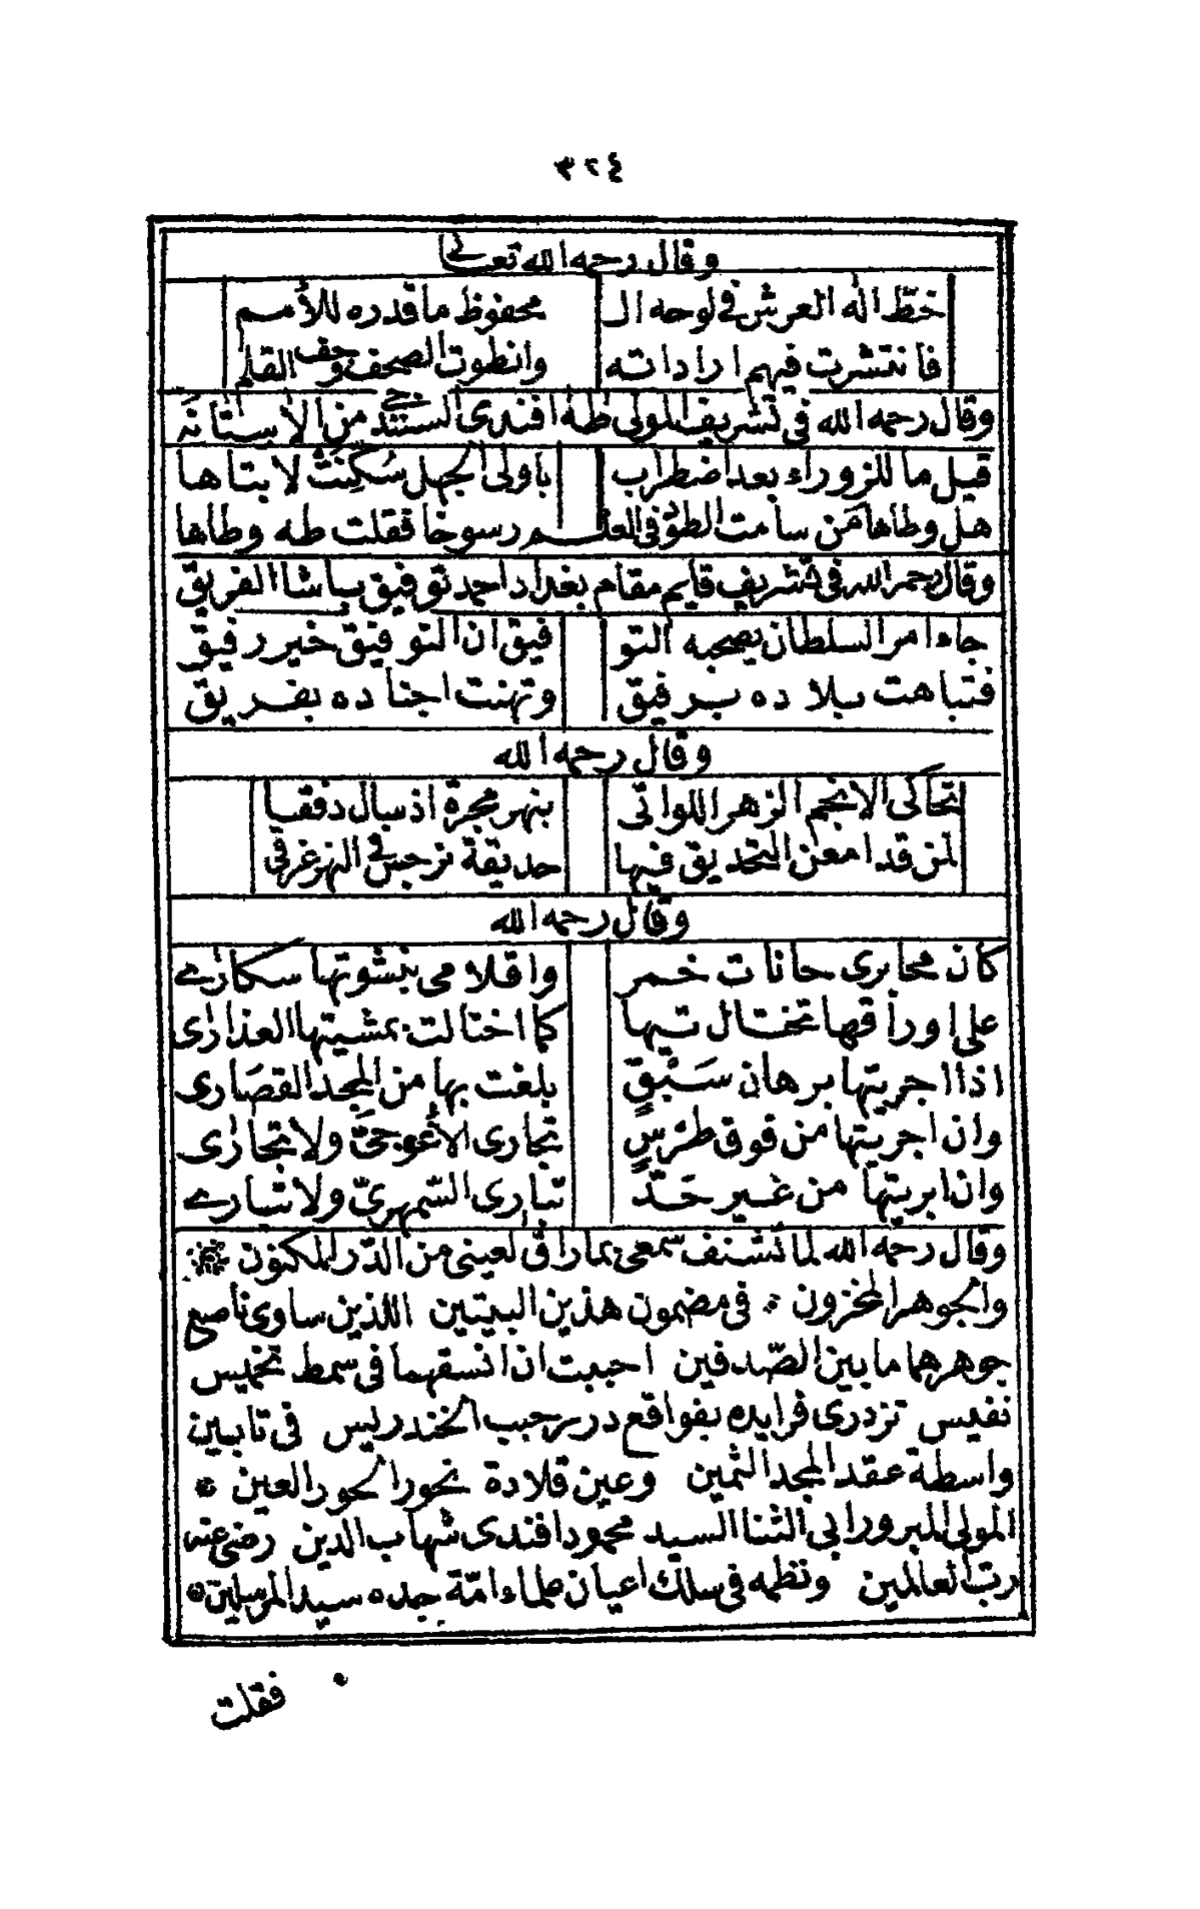 ٣٢٤
وقال رحمه الله تعالى
خطّ اله العرش في لوحه ال محفوظ ما قدره للأمم
فانتشرت فيهم اراداته وانطوت الصحف وجف القلم
وقال رحمه الله في تشريف المولى طه افندى السنندجي من الاستانة
قيل ما للزوراء بعد اضطراب باولى الجهل سُكِنَتْ لابتاها
هل وطاها مَن سامت الطود في العلم رسوخا فقلت طه وطاها
وقال رحمه الله في تشريف قايم مقام بغداد احمد توفيق باشا الفريق
جاء امر السلطان يصحبه التو فيق ان التوفيق خير رفيق
فتباهت بلاده برفيق وتهنت اجناده بفريق
وقال رحمه الله
تحاكى الانجم الزهر اللواتى بنهر مجرة اذ سال دفقا
لمن قد امعن التحديق فيها حديقة نرجس في النهر غرقى
وقال رحمه الله
كأن محابرى حانات خمر واقلامى بنشوتها سكارى
على اوراقها تختال تيها كما اختالت بمشيتها العذارى
اذا اجريتها برهان سَبْقٍ بلغت بها من المجد القصَارى
وان اجريتها من فوق طرْسٍ تجارى الأعوجىَّ ولا تجارى
وان ابريتها من غير حَدّ تبارى السّمهريّ ولا تبارى
وقال رحمه الله لما تشنف سمعى بما راق لعينى من الدّر المكنون
والجوهر المخزون في مضمون هذين البيتين اللذين ساوى ناصع
جوهرهما ما بين الصّدفين احببت ان انسقهما في سمط تخميس
نفيس تزدرى فرايده بفواقع در رحبب الخندريس في تابين
واسطة عقد المجد الثمين وعين قلادة نحور الحور العين
المولى المبرور ابي الثنا السيد محمود افندى شهاب الدين رضى عنه
ربّ العالمين ونظمه في سلك اعيان علماء امّة جده سيد المرسلين
فقلت